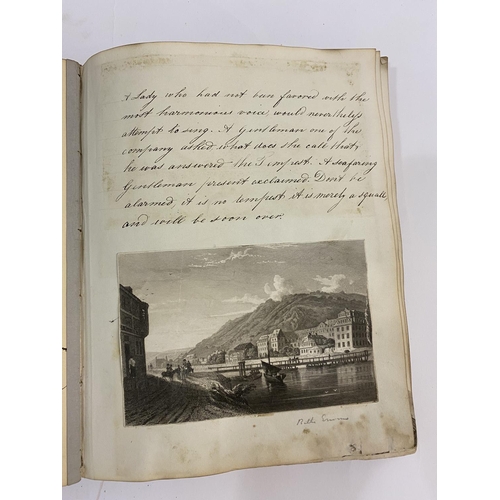 A Lady who had not been favored with the
most harmonious voice, would nevertheless
attempt to sing. A Gentleman one of the
company asked what does she call that,
he was answered the Tempest. A seafaring
Gentleman present exclaimed. Don't be
alarmed it is no tempest it is merely a squall
and will be soon over.